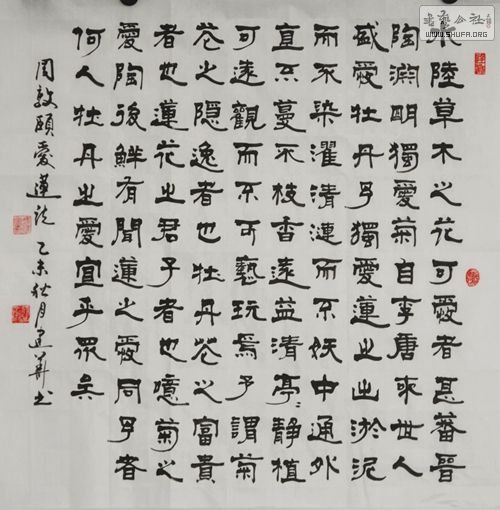 水陸草木之花可愛者甚蕃晉
陶淵明獨愛菊自李唐來世人
盛愛牡丹予獨愛蓮之出淤泥
而不染濯清漣而不妖中通外
直不蔓不枝香遠益清亭〻靜植
可遠觀而不可褻玩焉予謂菊
花之隱逸者也牡丹花之富貴
者也蓮花之君子者也噫菊之
愛陶後鮮有聞蓮之愛同予者
何人牡丹之愛宜乎眾矣
周敦頤愛蓮說 乙未秋月建華書
書法公社
WWW.SHUFA.ORG